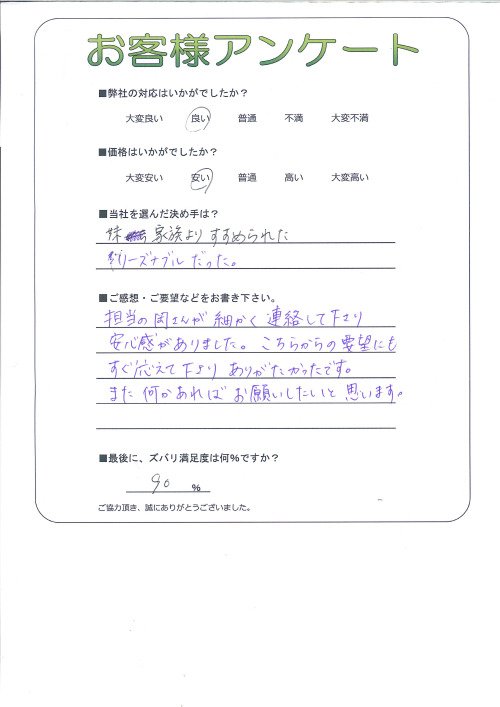 お客様アンケート
■弊社の対応はいかがでしたか？
大変良い 良い 普通 不満 大変不満
■価格はいかがでしたか？
大変安い 安い 普通 高い 大変高い
■当社を選んだ決め手は？
妹 家族よりすすめられた
リーズナブルだった。
■ご感想・ご要望などをお書き下さい。
担当の岡さんが細かく連絡して下さり
安心感がありました。こちらからの要望にも
すぐ応えて下さり ありがたかったです。
また何かあればお願いしたいと思います。
■最後に、ズバリ満足度は何%ですか？
90 %
ご協力頂き、誠にありがとうございました。